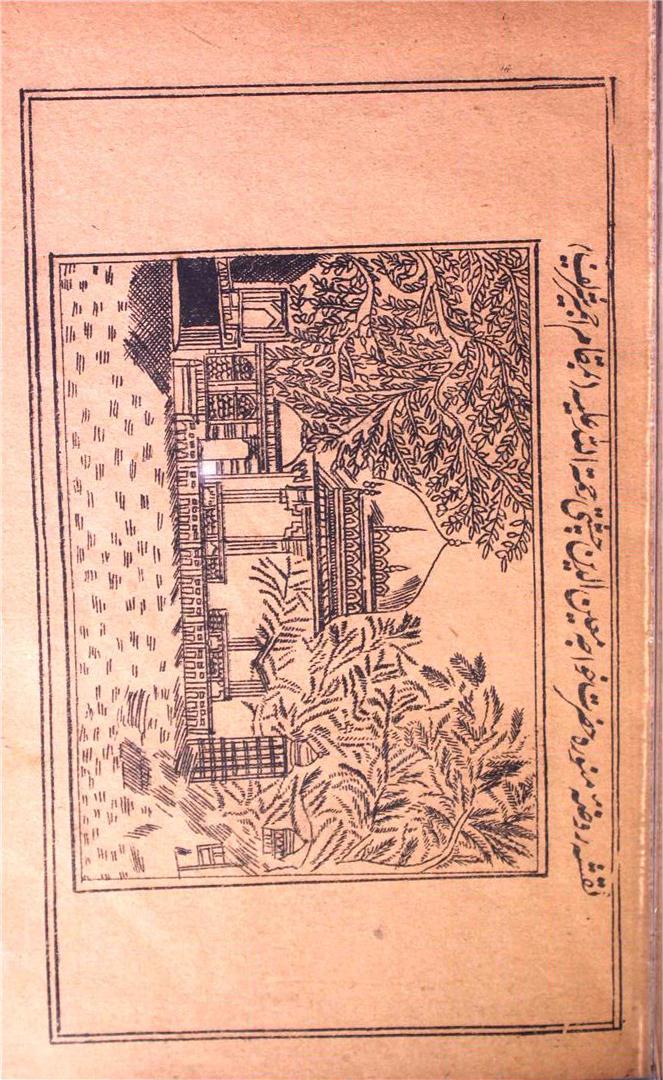 نقشہ روضۂ منورہ حضرت خواجہ معین الدین چشتی رحمۃ اللہ علیہ بمقام اجمیر شریف